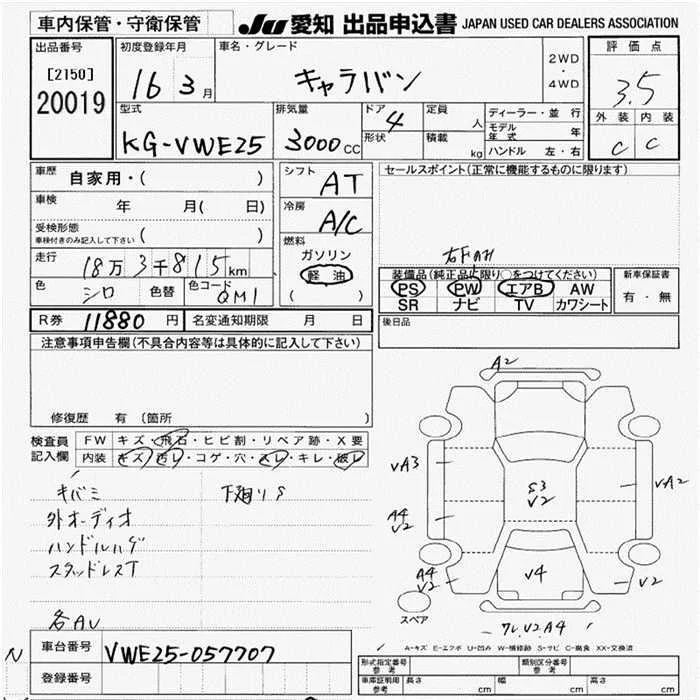 車内保管・守衛保管
JU 愛知 出品申込書 JAPAN USED CAR DEALERS ASSOCIATION
出品番号
[2150]
20019
初度登録年月
16 3月
車名・グレード
キャラバン
2WD
・
4WD
評価点
3.5
外装 内装
C C
型式
KG-VWE25
排気量
3000cc
ドア
4
形状
定員
人
積載
kg
ディーラー・並行
モデル年式 年
ハンドル 左・右
車歴
自家用・( )
車検
年 月( 日)
受検形態
車検付きのみ記入して下さい ( )
走行
18万3千815km
色
シロ
色替
色コード
QM1
シフト
AT
冷房
A/C
燃料
ガソリン
軽油
( )
セールスポイント(正常に機能するものに限ります)
右下のみ
装備品(純正品に限り○をつけてください)
PS PW エアB AW
SR ナビ TV カワシート
新車保証書
有・無
R券 11880 円
名変通知期限 月 日
後日品
注意事項申告欄(不具合内容等は具体的に記入して下さい)
修復歴 有 (箇所
検査員
記入欄
FW キズ・飛石・ヒビ割・リペア跡・X要
内装 キズ・汚レ・コゲ・穴・スレ・キレ・破レ
キバミ
下廻りS
外オーディオ
ハンドルハゲ
スタッドレスT
各AU
A2
VA3
A4
V2
A4
V2
S3
V2
V4
VA2
V2
スペア
ワレ.V2.A4
A-キズ E-エクボ U-凹み W-補修跡 S-サビ C-腐食 XX-交換済
N
車台番号
VWE25-057707
登録番号
形式指定番号
参考
類別区分番号
参考
車庫証明用
参考
長さ cm
幅 cm
高さ cm